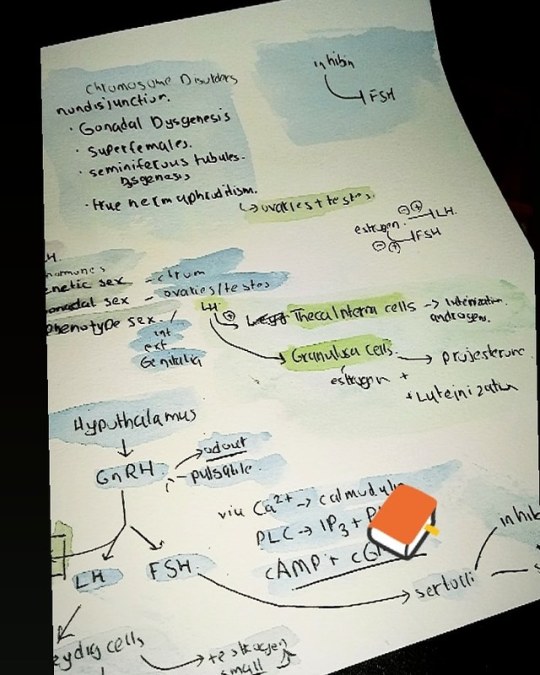 Chromosome Disorders
nondisjunction.
· Gonadal Dysgenesis
· superfemales.
· seminiferous tubules.
Dysgenesis
· true hermaphroditism.
↳ ovaries + testes
inhibin
FSH
estrogen
⊖⊕ LH.
FSH
⊖⊕
H.
hormones
enetic sex - chrom
onadal sex - ovaries/testes
phenotype sex /
int
ext
Genitalia
LH
⊕ Theca Interna cells → luteinization
androgen.
Granulosa cells → projesterone
estrogen +
+ Luteinization
Hypothalamus
GnRH
adout
pulsable
via Ca²⁺ → calmodulin
PLC → IP₃ +
cAMP +
LH
FSH
sertolli
inhib
eydig cells
→ testrogen
small